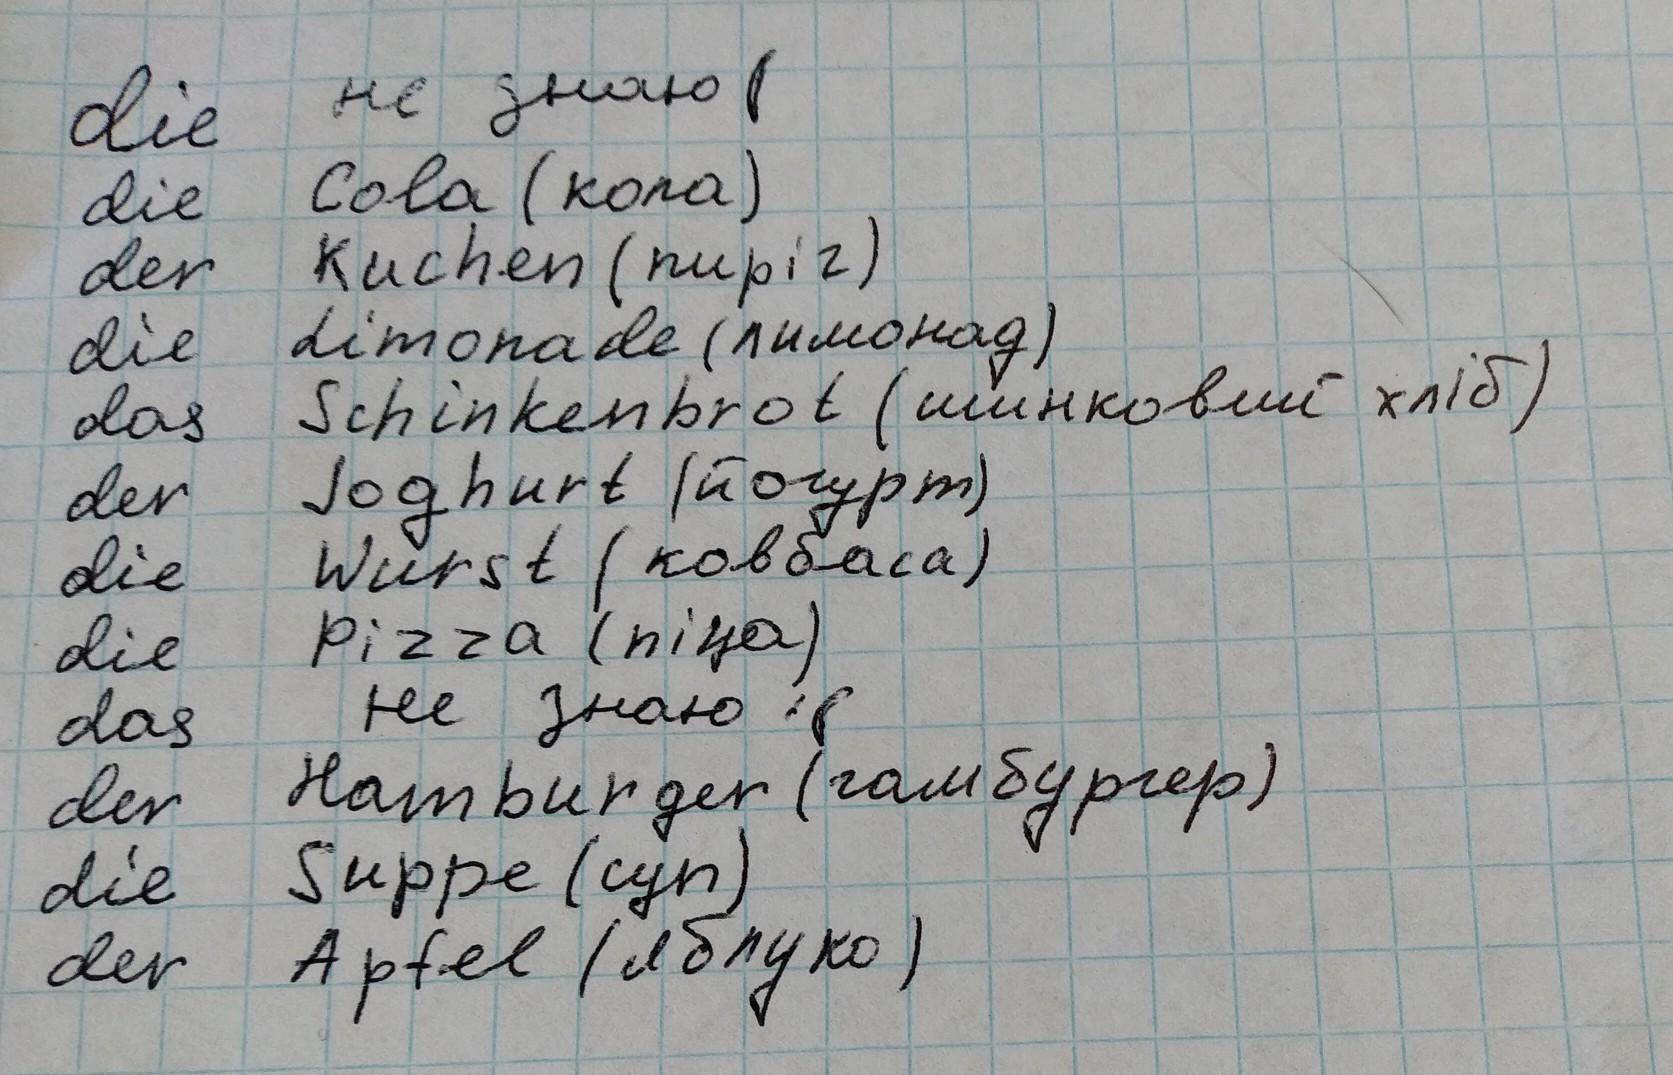 die не знаю (
die Cola (кола)
der Kuchen (пиріг)
die Limonade (лимонад)
das Schinkenbrot (шинковий хліб)
der Joghurt (йогурт)
die Wurst (ковбаса)
die Pizza (піца)
das не знаю :(
der Hamburger (гамбургер)
die Suppe (суп)
der Apfel (яблуко)